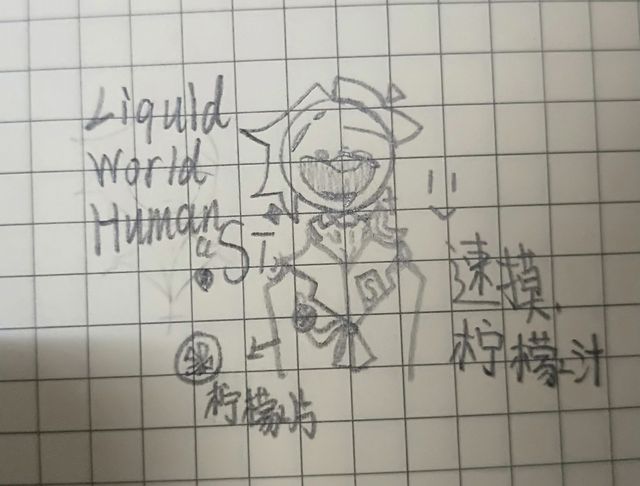 Liquid
World
Human
"ST
S
速摸
柠檬汁
柠檬片